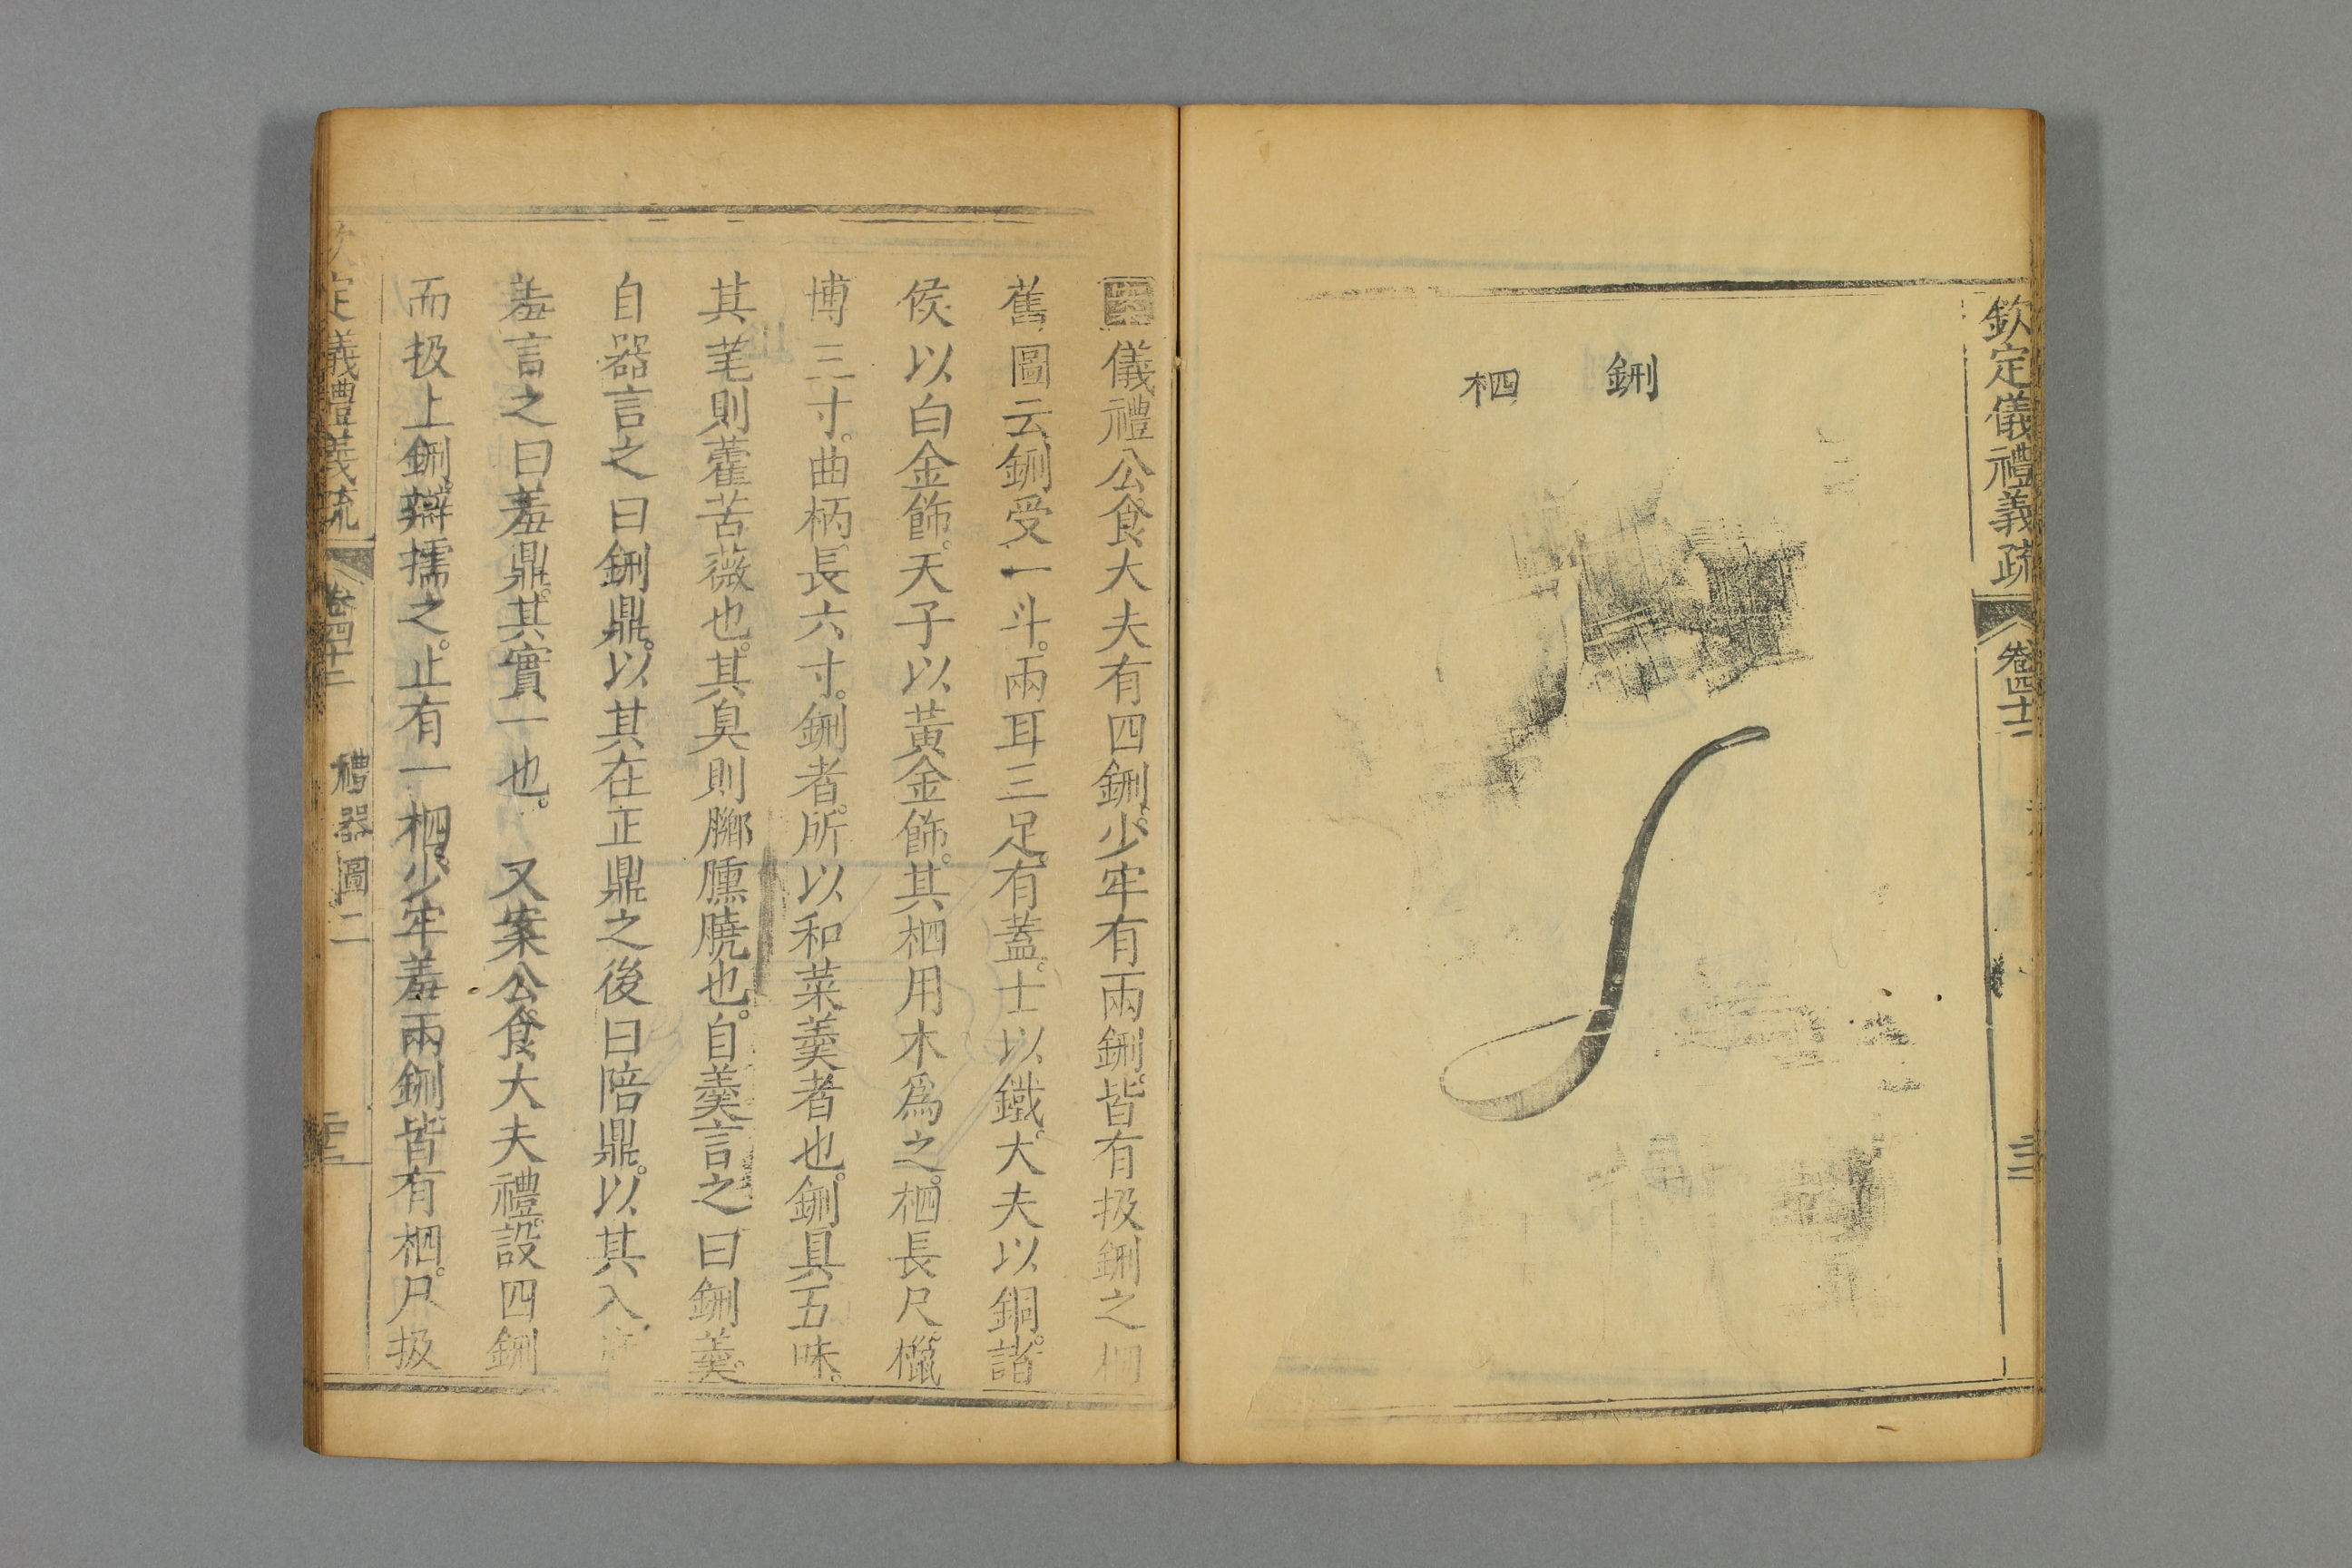 欽定儀禮義疏 卷四十二
鉶
柶
儀禮公食大夫有四鉶。少牢有兩鉶。皆有扱鉶之柶
舊圖云鉶受一斗。兩耳三足。有蓋。士以鐵。大夫以銅。諸
侯以白金飾。天子以黃金飾。其柶用木爲之。柶長尺㯿
博三寸。曲柄。長六寸。鉶者。所以和菜羹者也。鉶具五味。
其芼則藿苦薇也。其臭則膷臐膮也。自羹言之曰鉶羹。
自器言之曰鉶鼎。以其在正鼎之後曰陪鼎。以其入庶
羞言之曰羞鼎。其實一也。 又案公食大夫禮。設四鉶
而扱上鉶。辯擩之。止有一柶。少牢羞兩鉶。皆有柶。尺扱
欽定儀禮義疏 卷四十二 禮器圖二